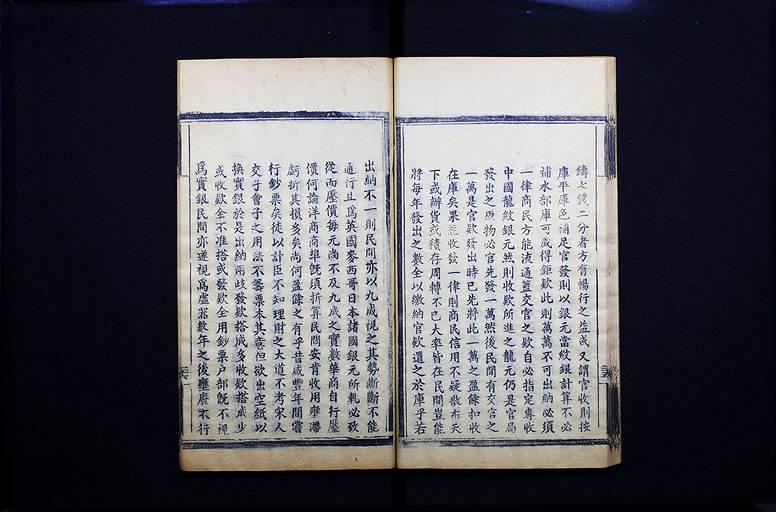 鑄七錢二分者方有暢行之益或又謂官收則按
庫平庫色補足官發則以銀元當紋銀計算不必
補水部庫可歲得鉅欵此則萬萬不可出納必須
一律商民方能流通蓋交官之欵自必指定專收
中國龍紋銀元然則收欵所進之龍元仍是官局
發出之原物必官先發一萬然後民間有交官之
一萬是官欵發出時已先將此一萬之盈餘扣收
在庫矣果能收發一律則商民信用不疑散布天
下或辦貨或積存周轉不已大率皆在民間豈能
將每年發出之數全以繳納官欵還之於庫乎若
出納不一則民間亦以九成視之其勢斷斷不能
通行且爲英國麥西哥日本諸國銀元所軋必致
從而壓價每元尚不及九成之實數華商自行壓
價何論洋商商埠旣須折算民間安肯收用壅滯
虧折其損多矣尚何盈餘之有乎昔咸豐年間嘗
行鈔票矣徒以計臣不知理財之大道不考宋人
交子會子之用法不籌票本其意但欲出空紙以
換實銀於是出納兩歧發欵搭成多收欵搭成少
或收欵全不准搭或發欵全用鈔票户部旣不視
爲實銀民間亦遂視爲虛器數年之後壅廢不行